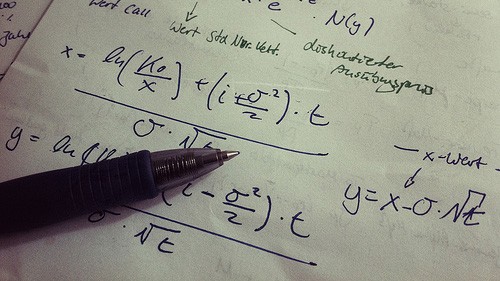 Wert Call
e · N(y)
Wert Std Nor. Vert.
diskontierter
Ausübungspreis
x = ln(K₀/x) + (i + σ²/2) · t
σ · √t
y = ln(
(i − σ²/2) · t
σ · √t
— x-Wert —
y = x − σ · √t